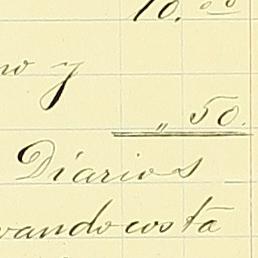 10.00
no y
„ 50.
Diarios
vando costa